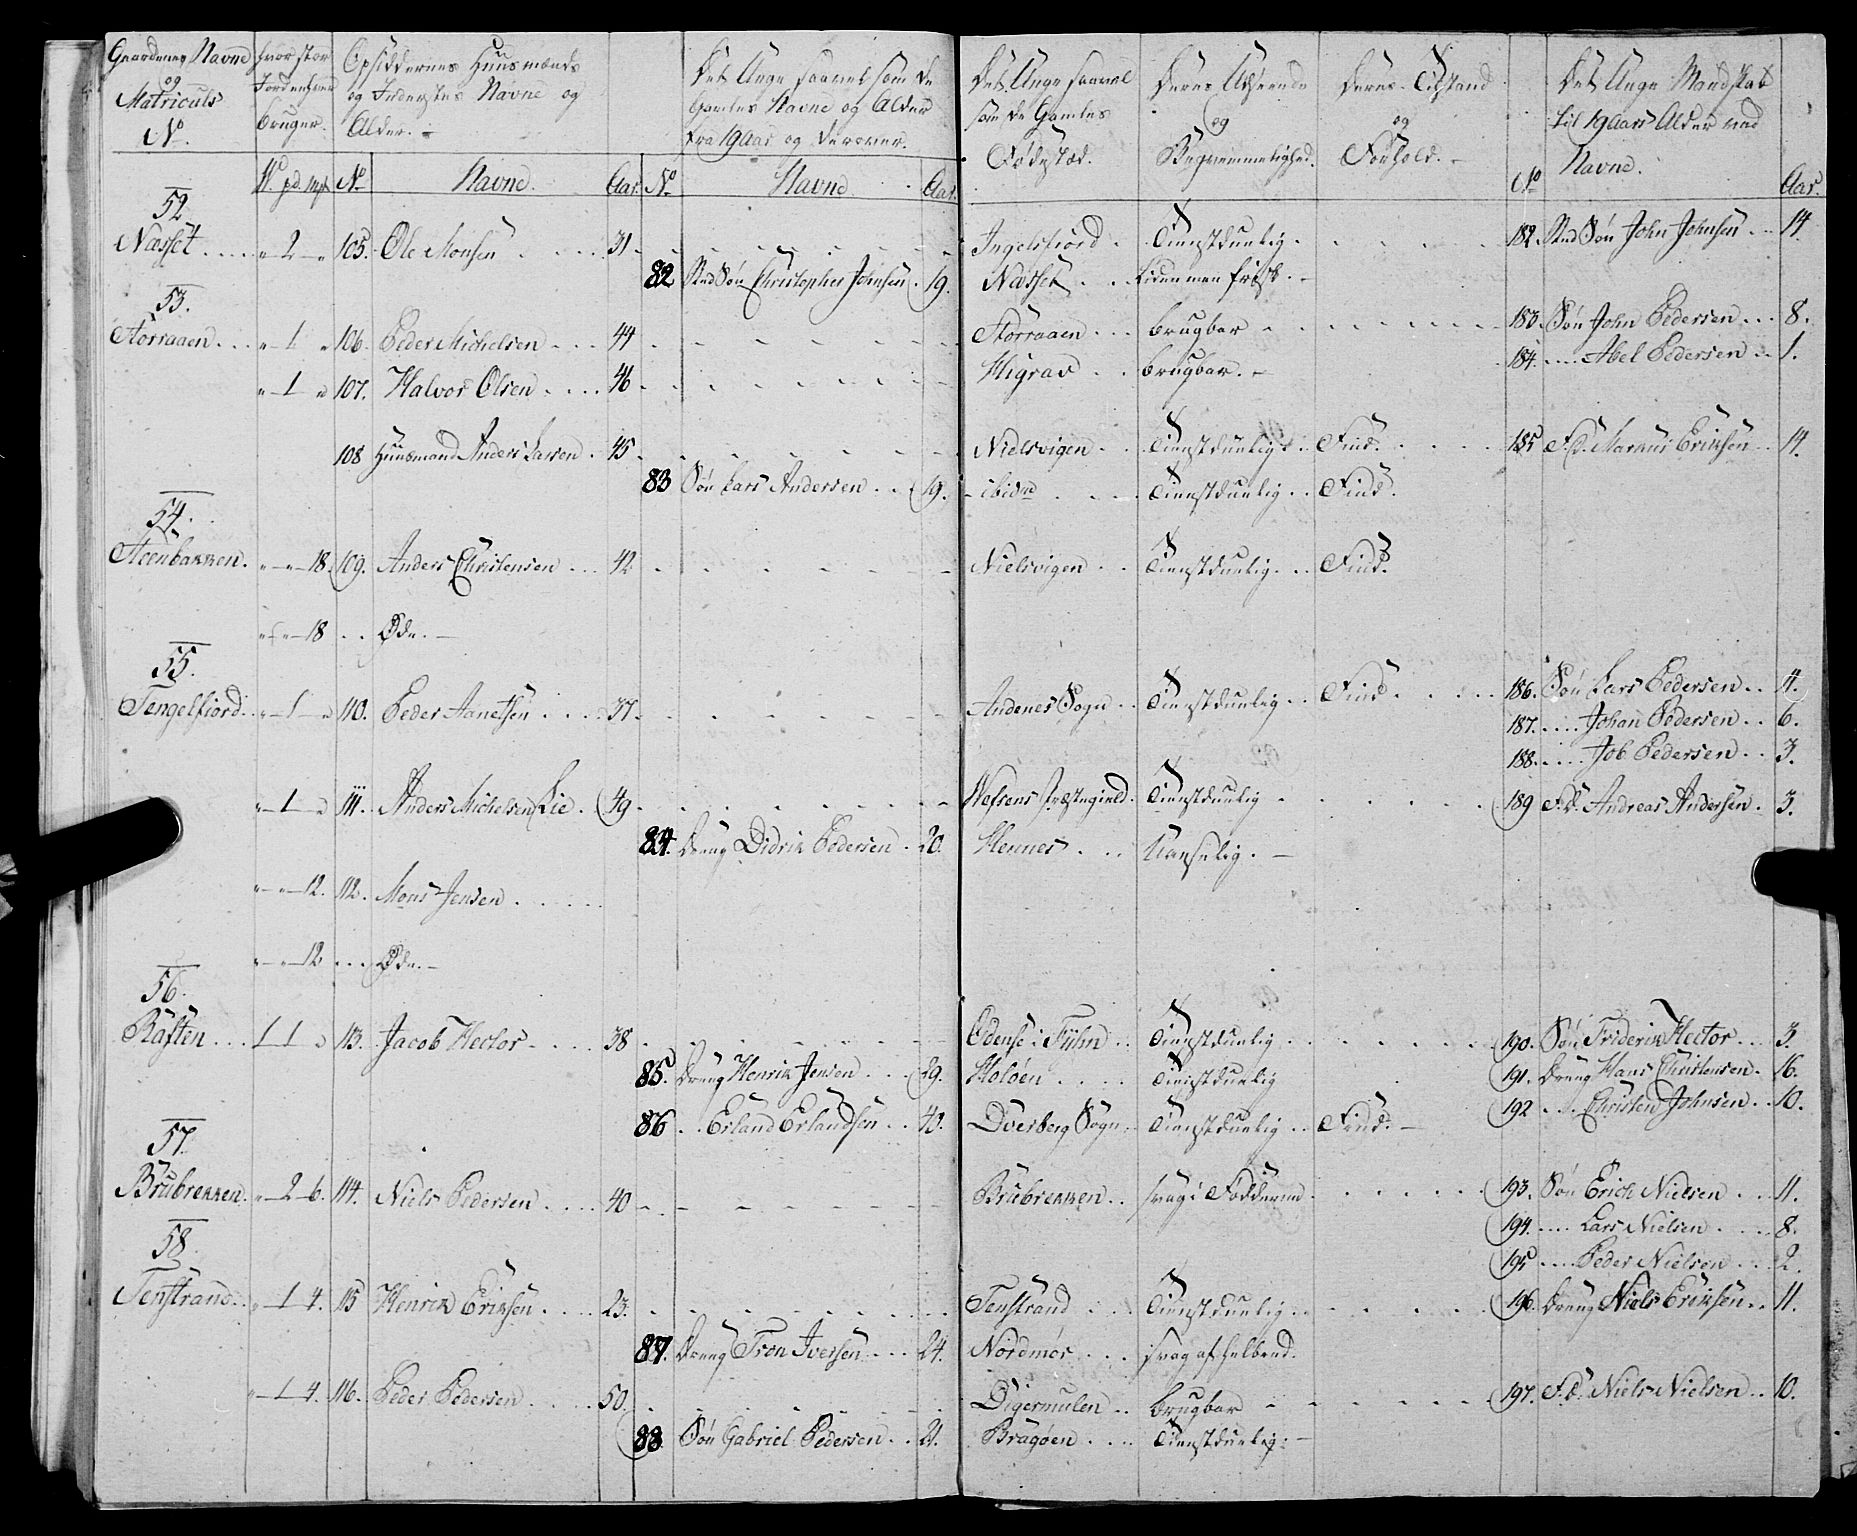 Gaardenes Navne og Matriculs No.
hvor stor Jord enhver bruger.
Opsiddernes Huusmænds og Inderstes Navne og Alder.
Det Unge saavel som de Gamles Navne og Alder fra 19 Aar og derover.
Det Unge saavel som de Gamles Fødested.
Deres Udseende og Beqvemmelighed.
Deres Tilstand og Forhold.
Det Unge Mandskab til 19 Aars Alder ved Navne.
W. pd. mk No Navne. Aar. No Navne. Aar. No Aar.
52.
Næsset .... " 2 " 105. Ole Monsen .... 31. Ingelsfiord. Tienstduelig. 182. Sted Søn John Johnsen .. 14.
82 Sted Søn Christopher Johnsen. 19. Næsset .. Liden men frisk.
53.
Storraaen ... " 1 " 106. Peder Michelsen ... 44 Storraaen ... brugbar 183. Søn John Pedersen ... 8.
184. .... Abel Pedersen .. 1.
" 1 " 107. Halvor Olsen .... 46 Higrav .. brugbar.
108 Huusmand Anders Larsen . 45 Nielsvigen .. Tienstduelig .. Find. 185 F.S. Markus Eriksen .. 14.
83 Søn Lars Andersen .. 19. ibidm .... Tienstduelig .. Find.
54.
Steenbakken. " " 18. 109. Anders Christensen ... 42 Nielsvigen .. Tienstduelig ... Find.
" " 18 .. Øde.
55.
Tengelfiord .. " 1 " 110. Peder Aanetsen .... 37. Andenes Sogn .. Tienstduelig .. Find. 186. Søn Lars Pedersen .. 4.
187. .... Johan Pedersen .. 6.
188. .... Job Pedersen .. 3.
" 1 " 111. Anders Michelsen Lie . 49. Wefsens Præstegield. Tienstduelig 189 F.S. Andreas Andersen . 3.
84. Dreng Didrik Pedersen . 20. Hennes ... Uanselig.
" " 12. 112. Mons Jensen
" " 12 ... Øde.
56.
Raften ... 1 1 " 113. Jacob Hector .... 38 Odense i Fühn .. Tienstduelig 190. Søn Friderik Hector ... 3.
85. Dreng Henrik Jensen ... 29. Holøen .... Tienstduelig 191. Dreng Hans Christensen. 16.
192 .... Christen Johnsen .. 10.
86 .. Erland Erlandsen .. 40. Dverberg Sogn .. Tienstduelig .. Find.
57.
Brubrekken. " 2 6. 114. Niels Pedersen .... 40 Brubrekken .. svag i Fødderne 193. Søn Erich Nielsen ... 11.
194. .... Lars Nielsen ... 8.
195 .... Peder Nielsen ... 2.
58.
Tenstrand .. " 1 4. 115 Henrik Eriksen .... 23. Tenstrand .. Tienstduelig 196. Dreng Niels Eriksen .. 11.
87. Dreng Tron Iversen ... 24. Nordmør ... svag af helbred.
" 1 4. 116. Peder Pedersen .... 50. Digermulen .. brugbar 197. F.S. Niels Nielsen .. 10.
88 Søn Gabriel Pedersen .. 21. Bragøen ... Tienstduelig.